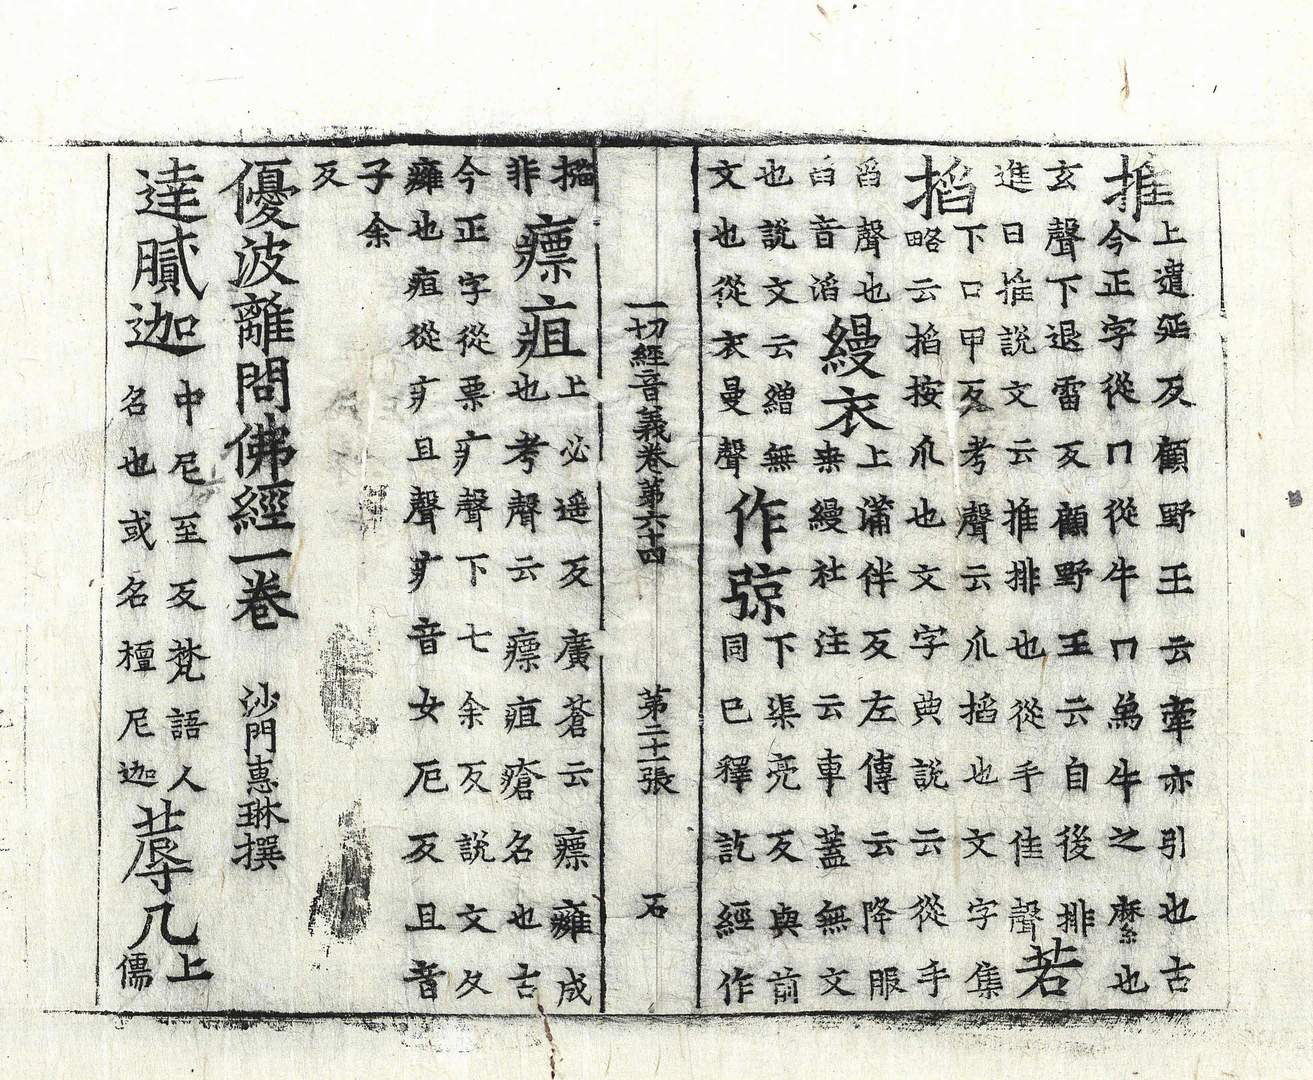 推 上遣延反顧野王云牽亦引也古
今正字從冂從牛冂爲牛之縻也
玄聲下退雷反顧野王云自後排
進曰推說文云推排也從手隹聲 若
掐 下口甲反考聲云爪掐也文字集
略云掐按爪也文字典說云從手
臽聲也
臽音滔 縵衣 上滿伴反左傳云降服
乘縵杜注云車蓋無文
也說文云繒無
文也從衣曼聲 作弶 下渠亮反與前
同已釋訖經作
一切經音義卷第六十四 第二十一張 石
非 瘭疽 上必遥反廣蒼云瘭癰成
也考聲云瘭疽瘡名也古
今正字從票疒聲下七余反說文久
癰也疽從疒且聲疒音女厄反且音
子余
反
優波離問佛經一卷 沙門惠琳撰
達膩迦 中尼至反梵語人
名也或名檀尼迦 蓐几 上
儒